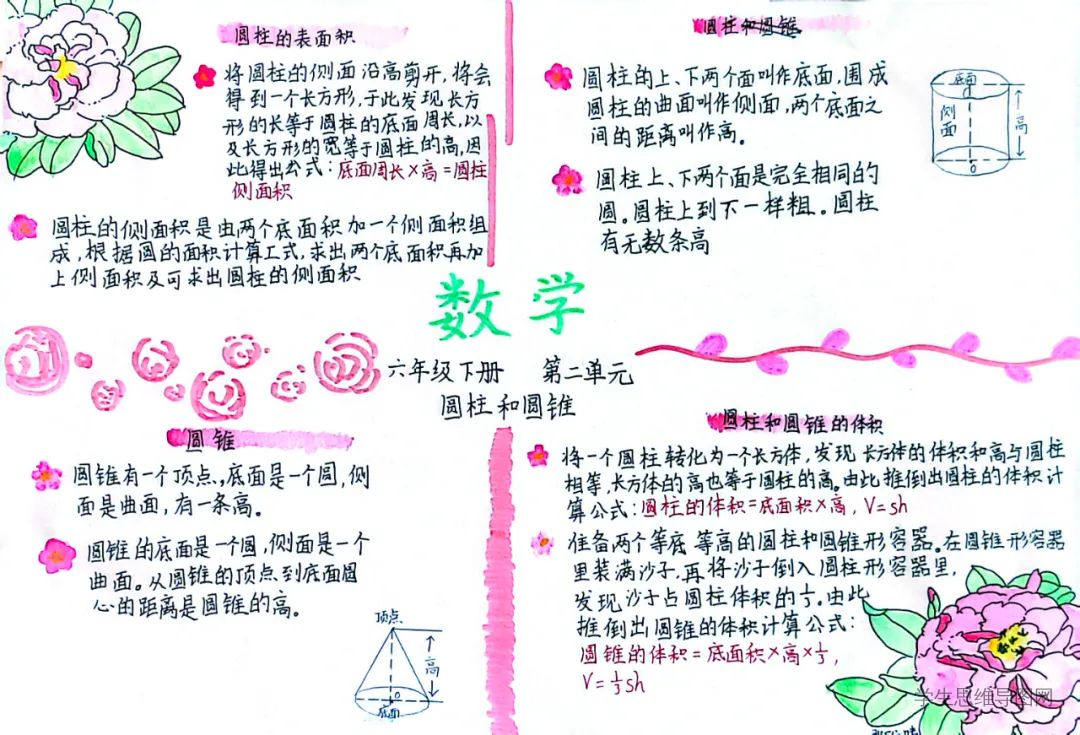 圆柱的表面积
将圆柱的侧面沿高剪开,将会
得到一个长方形,于此发现长方
形的长等于圆柱的底面周长,以
及长方形的宽等于圆柱的高,因
此得出公式:底面周长×高=圆柱
侧面积
圆柱的侧面积是由两个底面积加一个侧面积组
成,根据圆的面积计算工式,求出两个底面积再加
上侧面积及可求出圆柱的侧面积
圆柱和圆锥
圆柱的上、下两个面叫作底面,围成
圆柱的曲面叫作侧面,两个底面之
间的距离叫作高。
圆柱上、下两个面是完全相同的
圆。圆柱上到下一样粗。圆柱
有无数条高
底面
侧面
高
O
数学
六年级下册 第二单元
圆柱和圆锥
圆锥
圆锥有一个顶点,底面是一个圆,侧
面是曲面,有一条高。
圆锥的底面是一个圆,侧面是一个
曲面。从圆锥的顶点到底面圆
心的距离是圆锥的高。
顶点
高
O
底面
圆柱和圆锥的体积
将一个圆柱转化为一个长方体,发现长方体的体积和高与圆柱
相等,长方体的高也等于圆柱的高。由此推倒出圆柱的体积计
算公式:圆柱的体积=底面积×高,V=sh
准备两个等底等高的圆柱和圆锥形容器。在圆锥形容器
里装满沙子,再将沙子倒入圆柱形容器里,
发现沙子占圆柱体积的⅓。由此
推倒出圆锥的体积计算公式:
圆锥的体积=底面积×高×⅓,
V=⅓sh
学生思维导图网